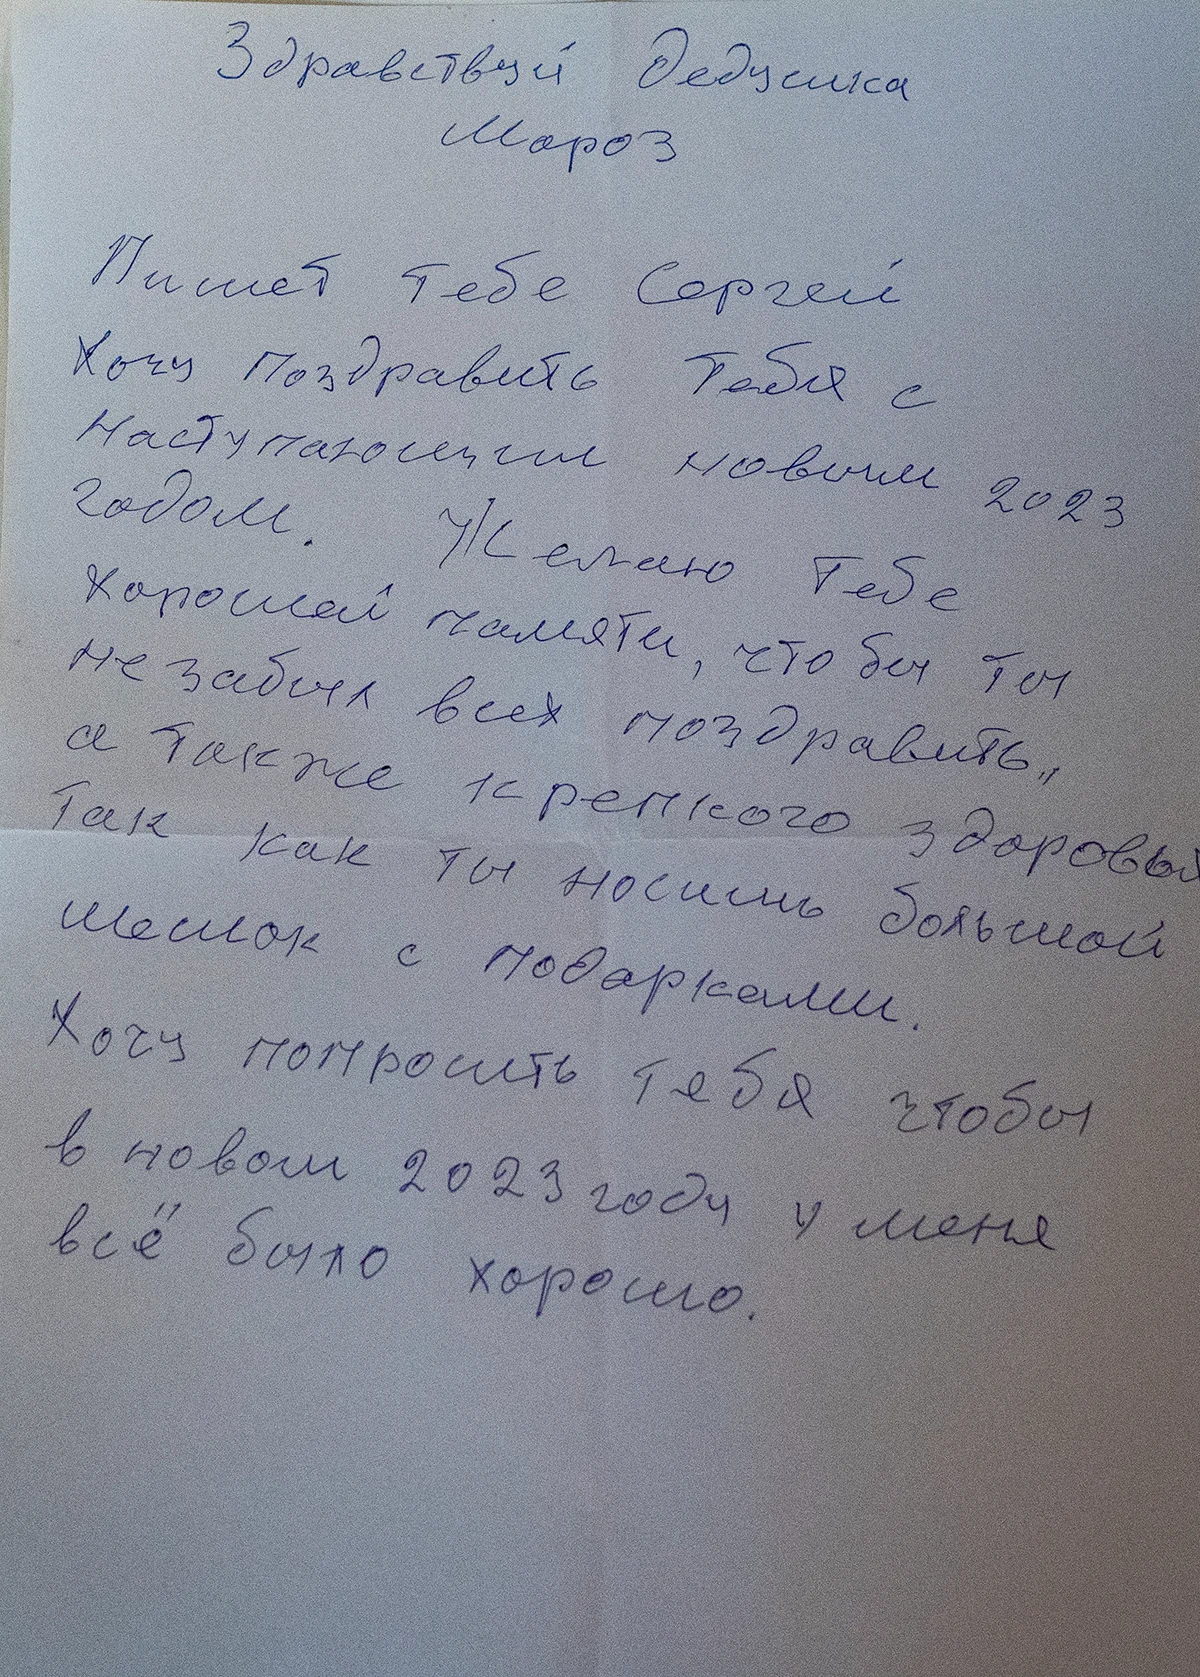 Здравствуй Дедушка
Мороз
Пишет тебе Сергей
Хочу поздравить тебя с
наступающим новым 2023
годом. Желаю тебе
хорошей памяти, что бы ты
не забыл всех поздравить,
а также крепкого здоровья
так как ты носишь большой
мешок с подарками.
Хочу попросить тебя чтобы
в новом 2023 году у меня
всё было хорошо.